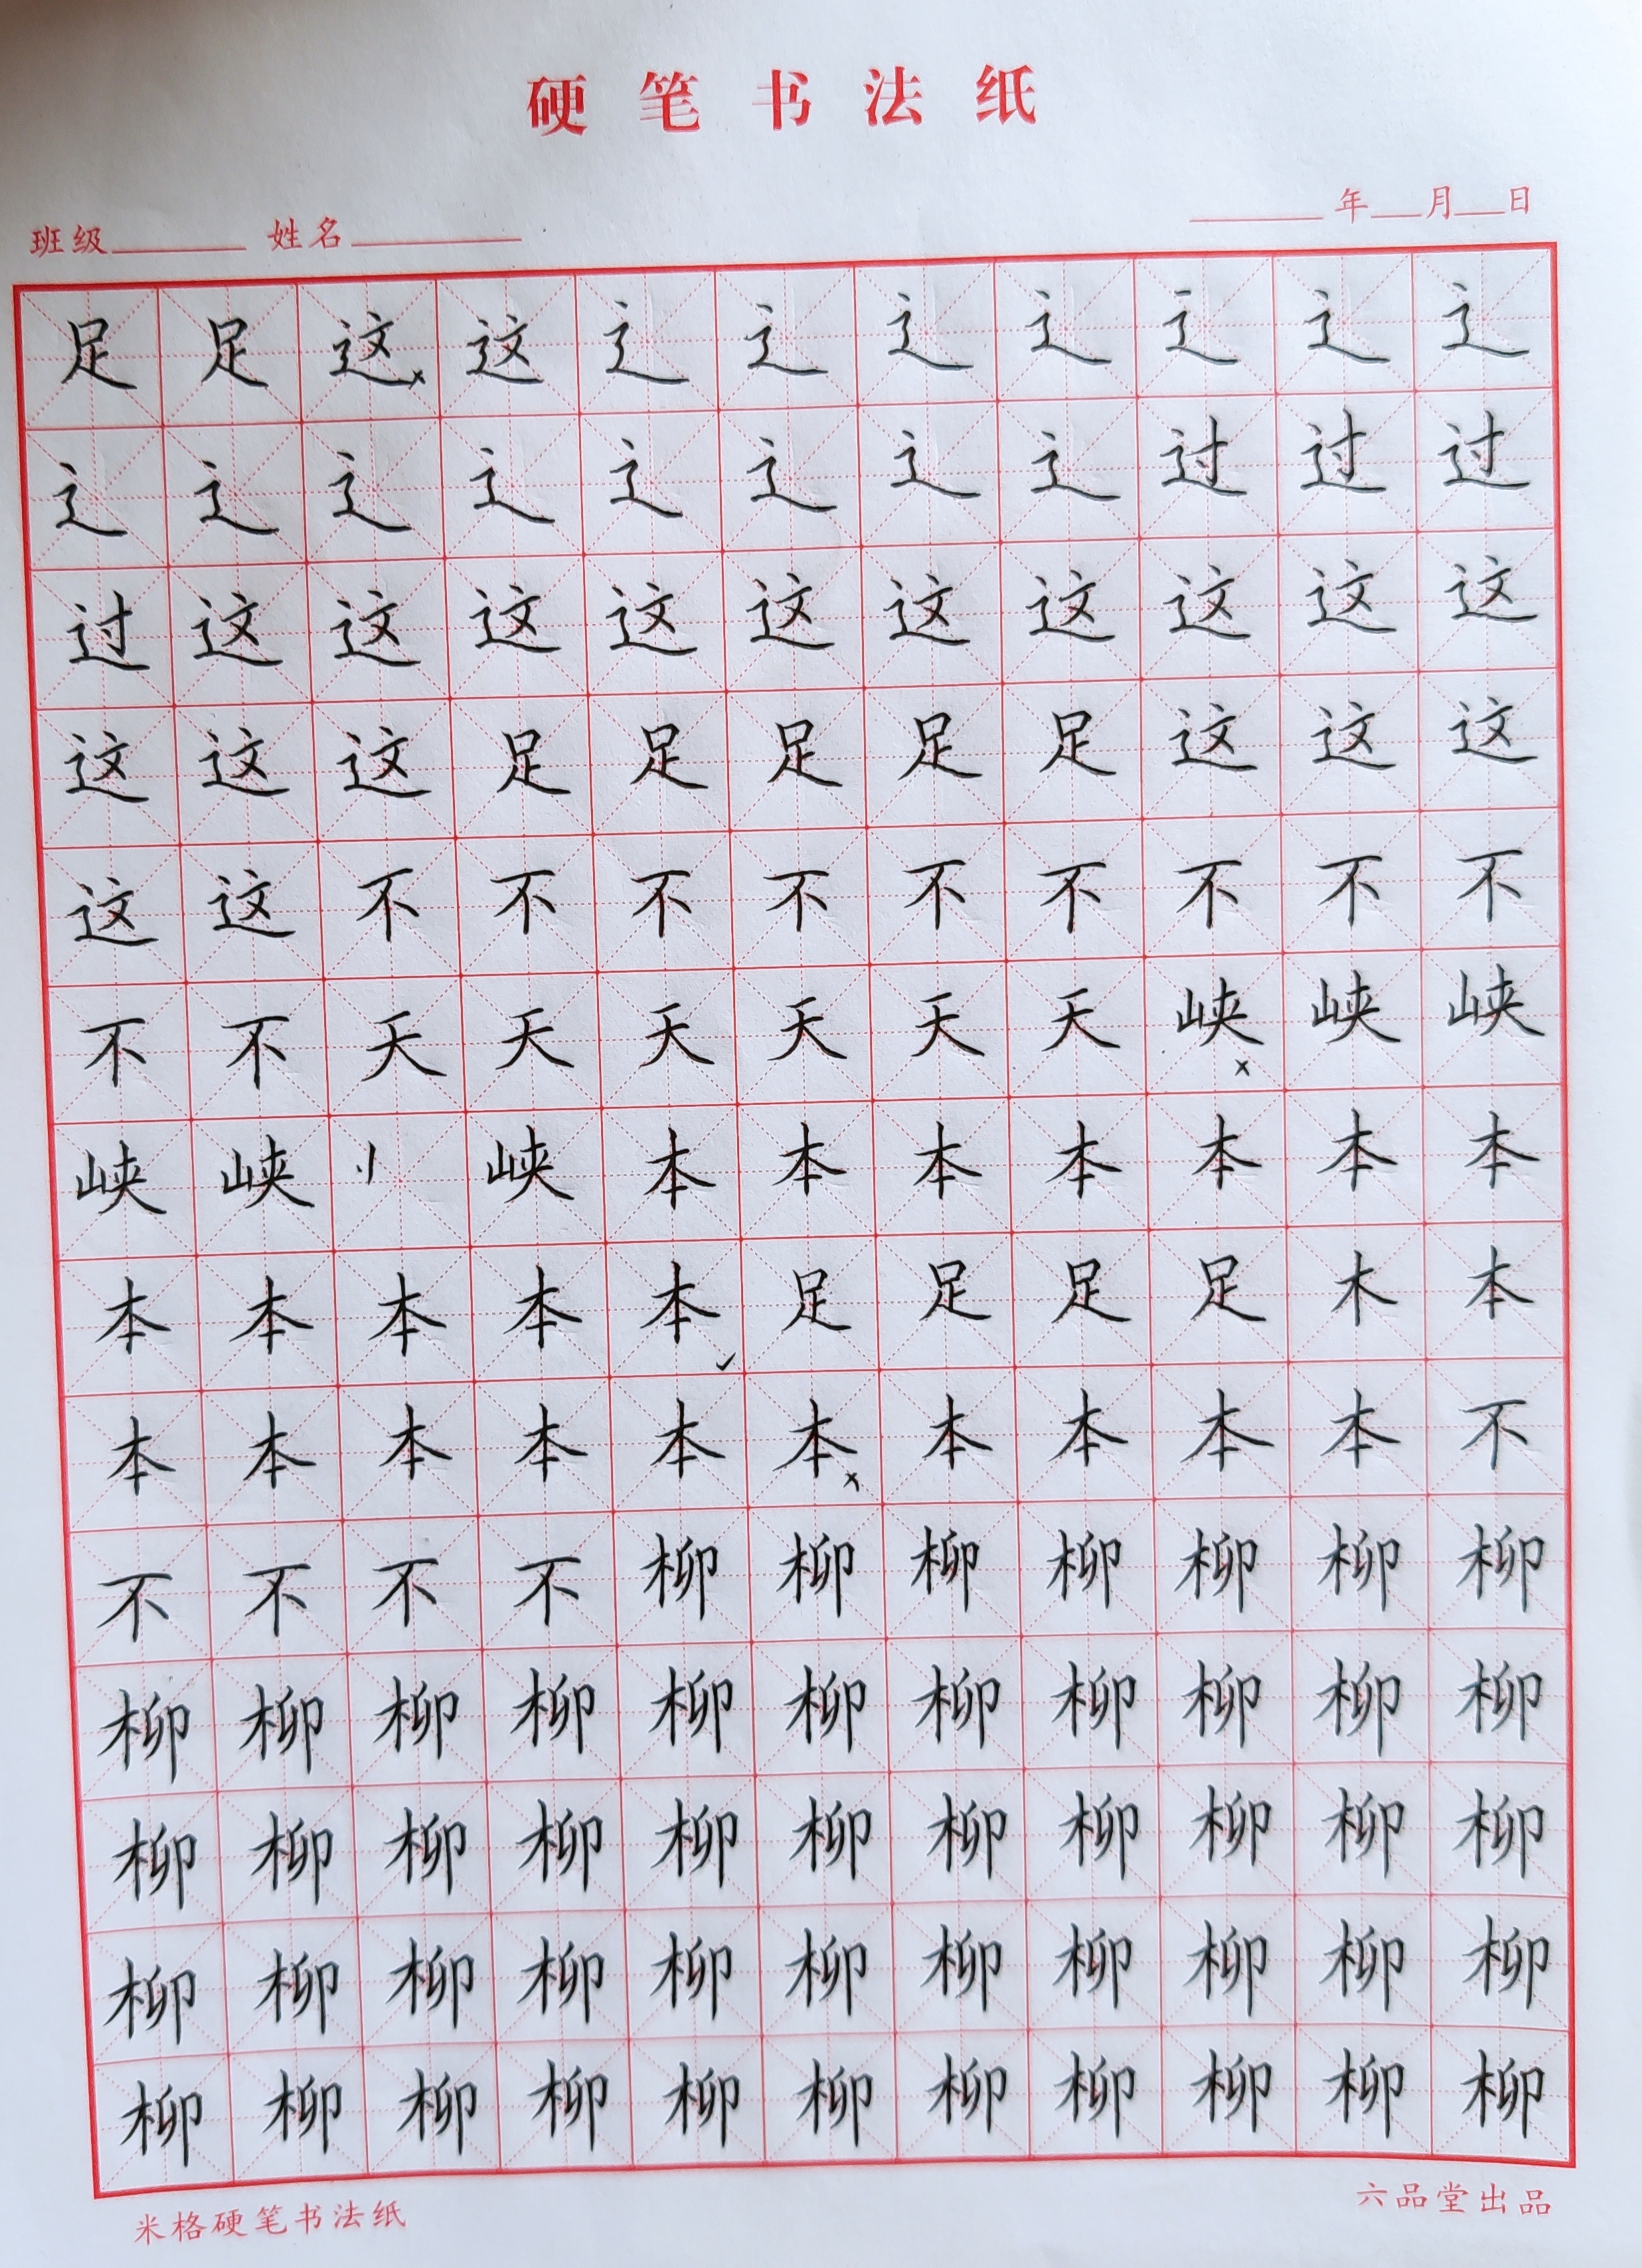 硬笔书法纸
班级 姓名 年 月 日
足足这这辶辶辶辶辶辶辶
辶辶辶辶辶辶辶辶过过过
过这这这这这这这这这这
这这这足足足足足这这这
这这不不不不不不不不不
不不天天天天天天峡峡峡
峡峡峡本本本本本本本
本本本本本足足足足木本
本本本本本本本本本本不
不不不不柳柳柳柳柳柳柳
柳柳柳柳柳柳柳柳柳柳柳
柳柳柳柳柳柳柳柳柳柳柳
柳柳柳柳柳柳柳柳柳柳柳
柳柳柳柳柳柳柳柳柳柳柳
米格硬笔书法纸 六品堂出品